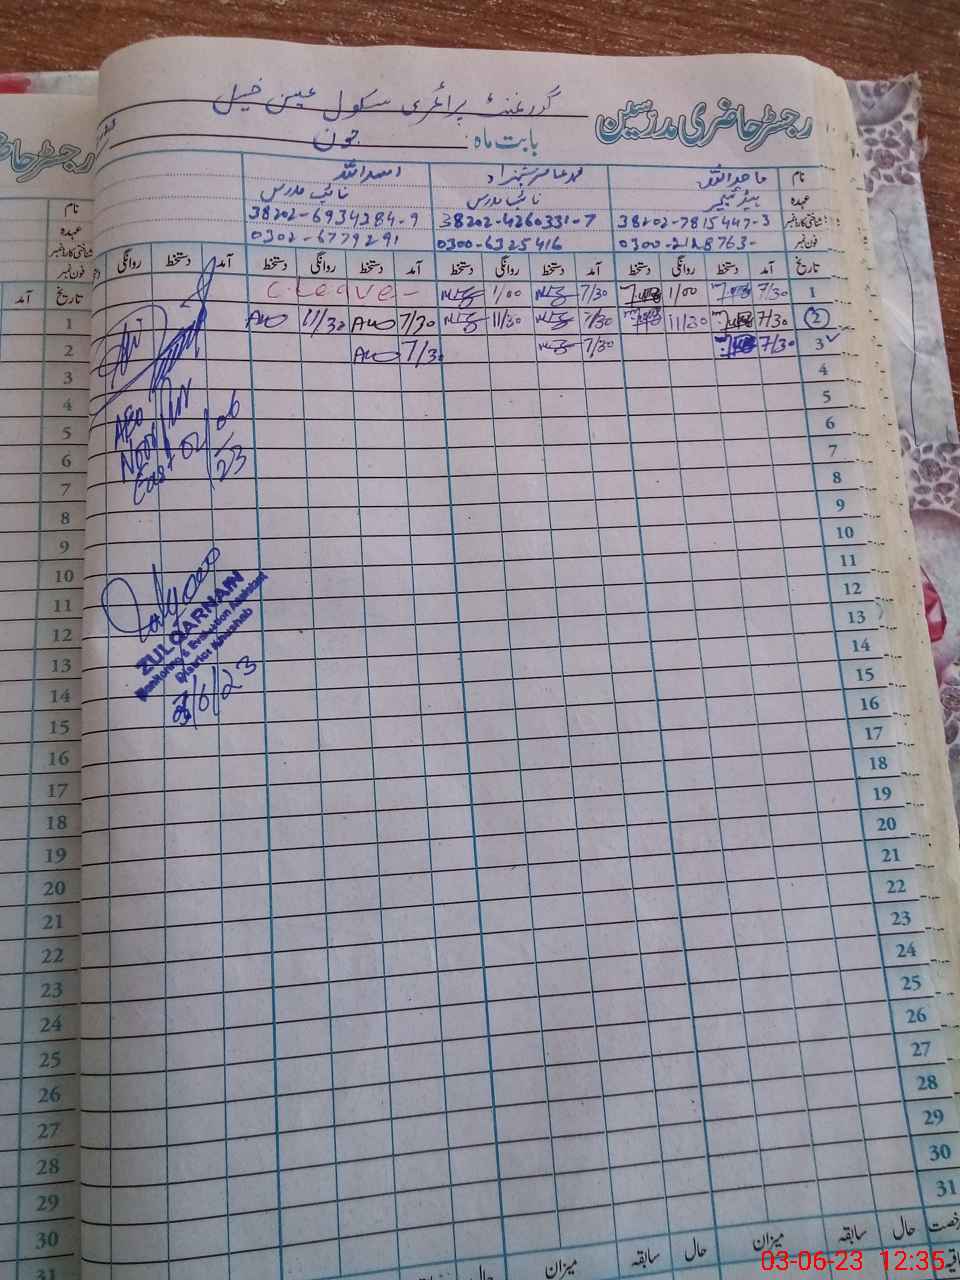 رجسٹر حاضری مدرسین
گورنمنٹ پرائمری سکول عیسن خیل
بابت ماہ: جون
نام ماجد اللہ محمد عامر شہزاد اسد اللہ
عہدہ ہیڈ ٹیچر نائب مدرس نائب مدرس
شناختی کارڈ نمبر 38202-7815447-3 38202-4260331-7 38202-6934284-9
فون نمبر 0300-2128763- 0300-6325416 0302-6779291
تاریخ آمد دستخط روانگی دستخط آمد دستخط روانگی دستخط آمد دستخط روانگی دستخط آمد دستخط روانگی
1 7/30 1/00 7/30 1/00 C.Leave-
2 7/30 11/30 7/30 11/30 7/30 11/30
3 7/30 7/30 7/30
4
5
6
7
8
9
10
11
12
13
14
15
16
17
18
19
20
21
22
23
24
25
26
27
28
29
30
31
AEO
02/06/23
ZULQARNAIN
Monitoring & Evaluation Assistant
District Khushab
3/6/23
رخصت حال سابقہ میزان حال سابقہ میزان حال
رجسٹر حاضری
نام
عہدہ
شناختی کارڈ نمبر
فون نمبر
تاریخ آمد
1
2
3
4
5
6
7
8
9
10
11
12
13
14
15
16
17
18
19
20
21
22
23
24
25
26
27
28
29
30
31
03-06-23 12:35